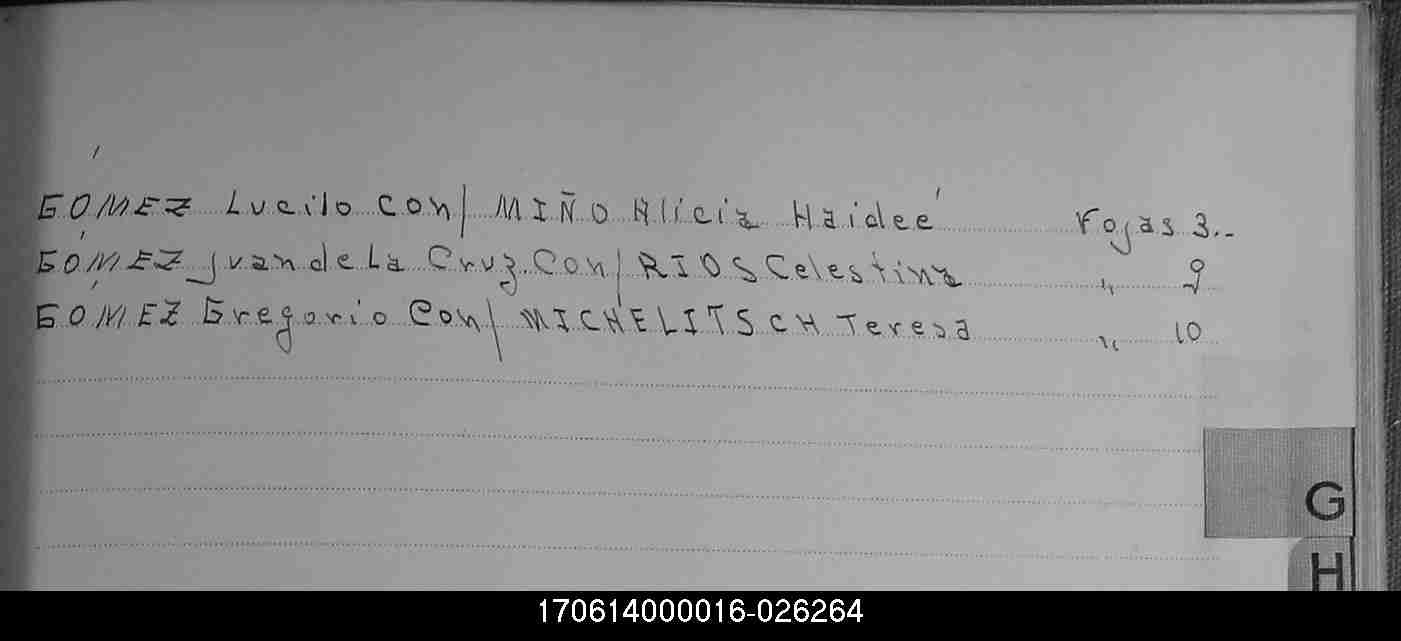 GÓMEZ Lucilo con/ MIÑO Alicia Haideé Fojas 3..
GÓMEZ Juan de La Cruz. Con/ RIOS Celestina " 9
GÓMEZ Gregorio Con/ MICHELITSCH Teresa " 10
G
H
170614000016-026264